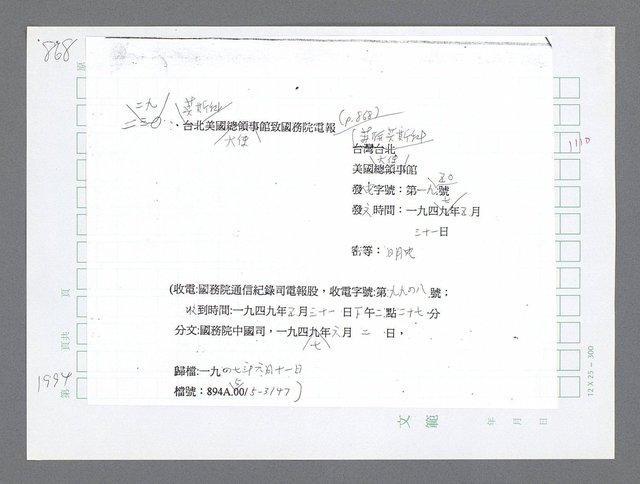 868
原
二九
莫斯科
二三〇、台北美國總領事館致國務院電報
(p.868)
大使
台灣台北
大使
美國總領事館
發電字號：第一九號
七
發文時間：一九四九年五月
三十一日
密等：明電
(收電:國務院通信紀錄司電報股，收電字號:第九九四八號：
收到時間:一九四九年五月三十一日下午二點二十七分
分文:國務院中國司，一九四九年六月二日，
七
歸檔:一九四七年六月十一日
檔號：894A.00/5-3147)
1110
頁
頁共
第
1994
12 X 25 = 300
文範
年 月 日